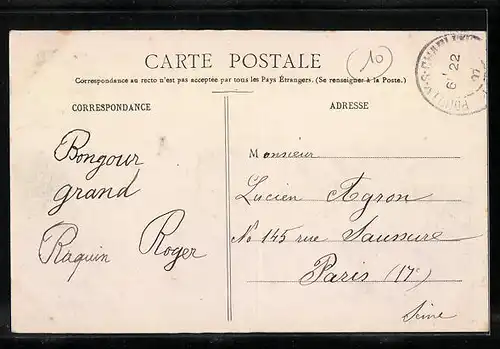 CARTE POSTALE
10
Correspondance au recto n'est pas acceptée par tous les Pays Étrangers. (Se renseigner à la Poste.)
CORRESPONDANCE
ADRESSE
6 22
Bongour
grand
Raquin Roger
Monsieur
Lucien Agron
No 145 rue Saussure
Paris (17e)
Seine